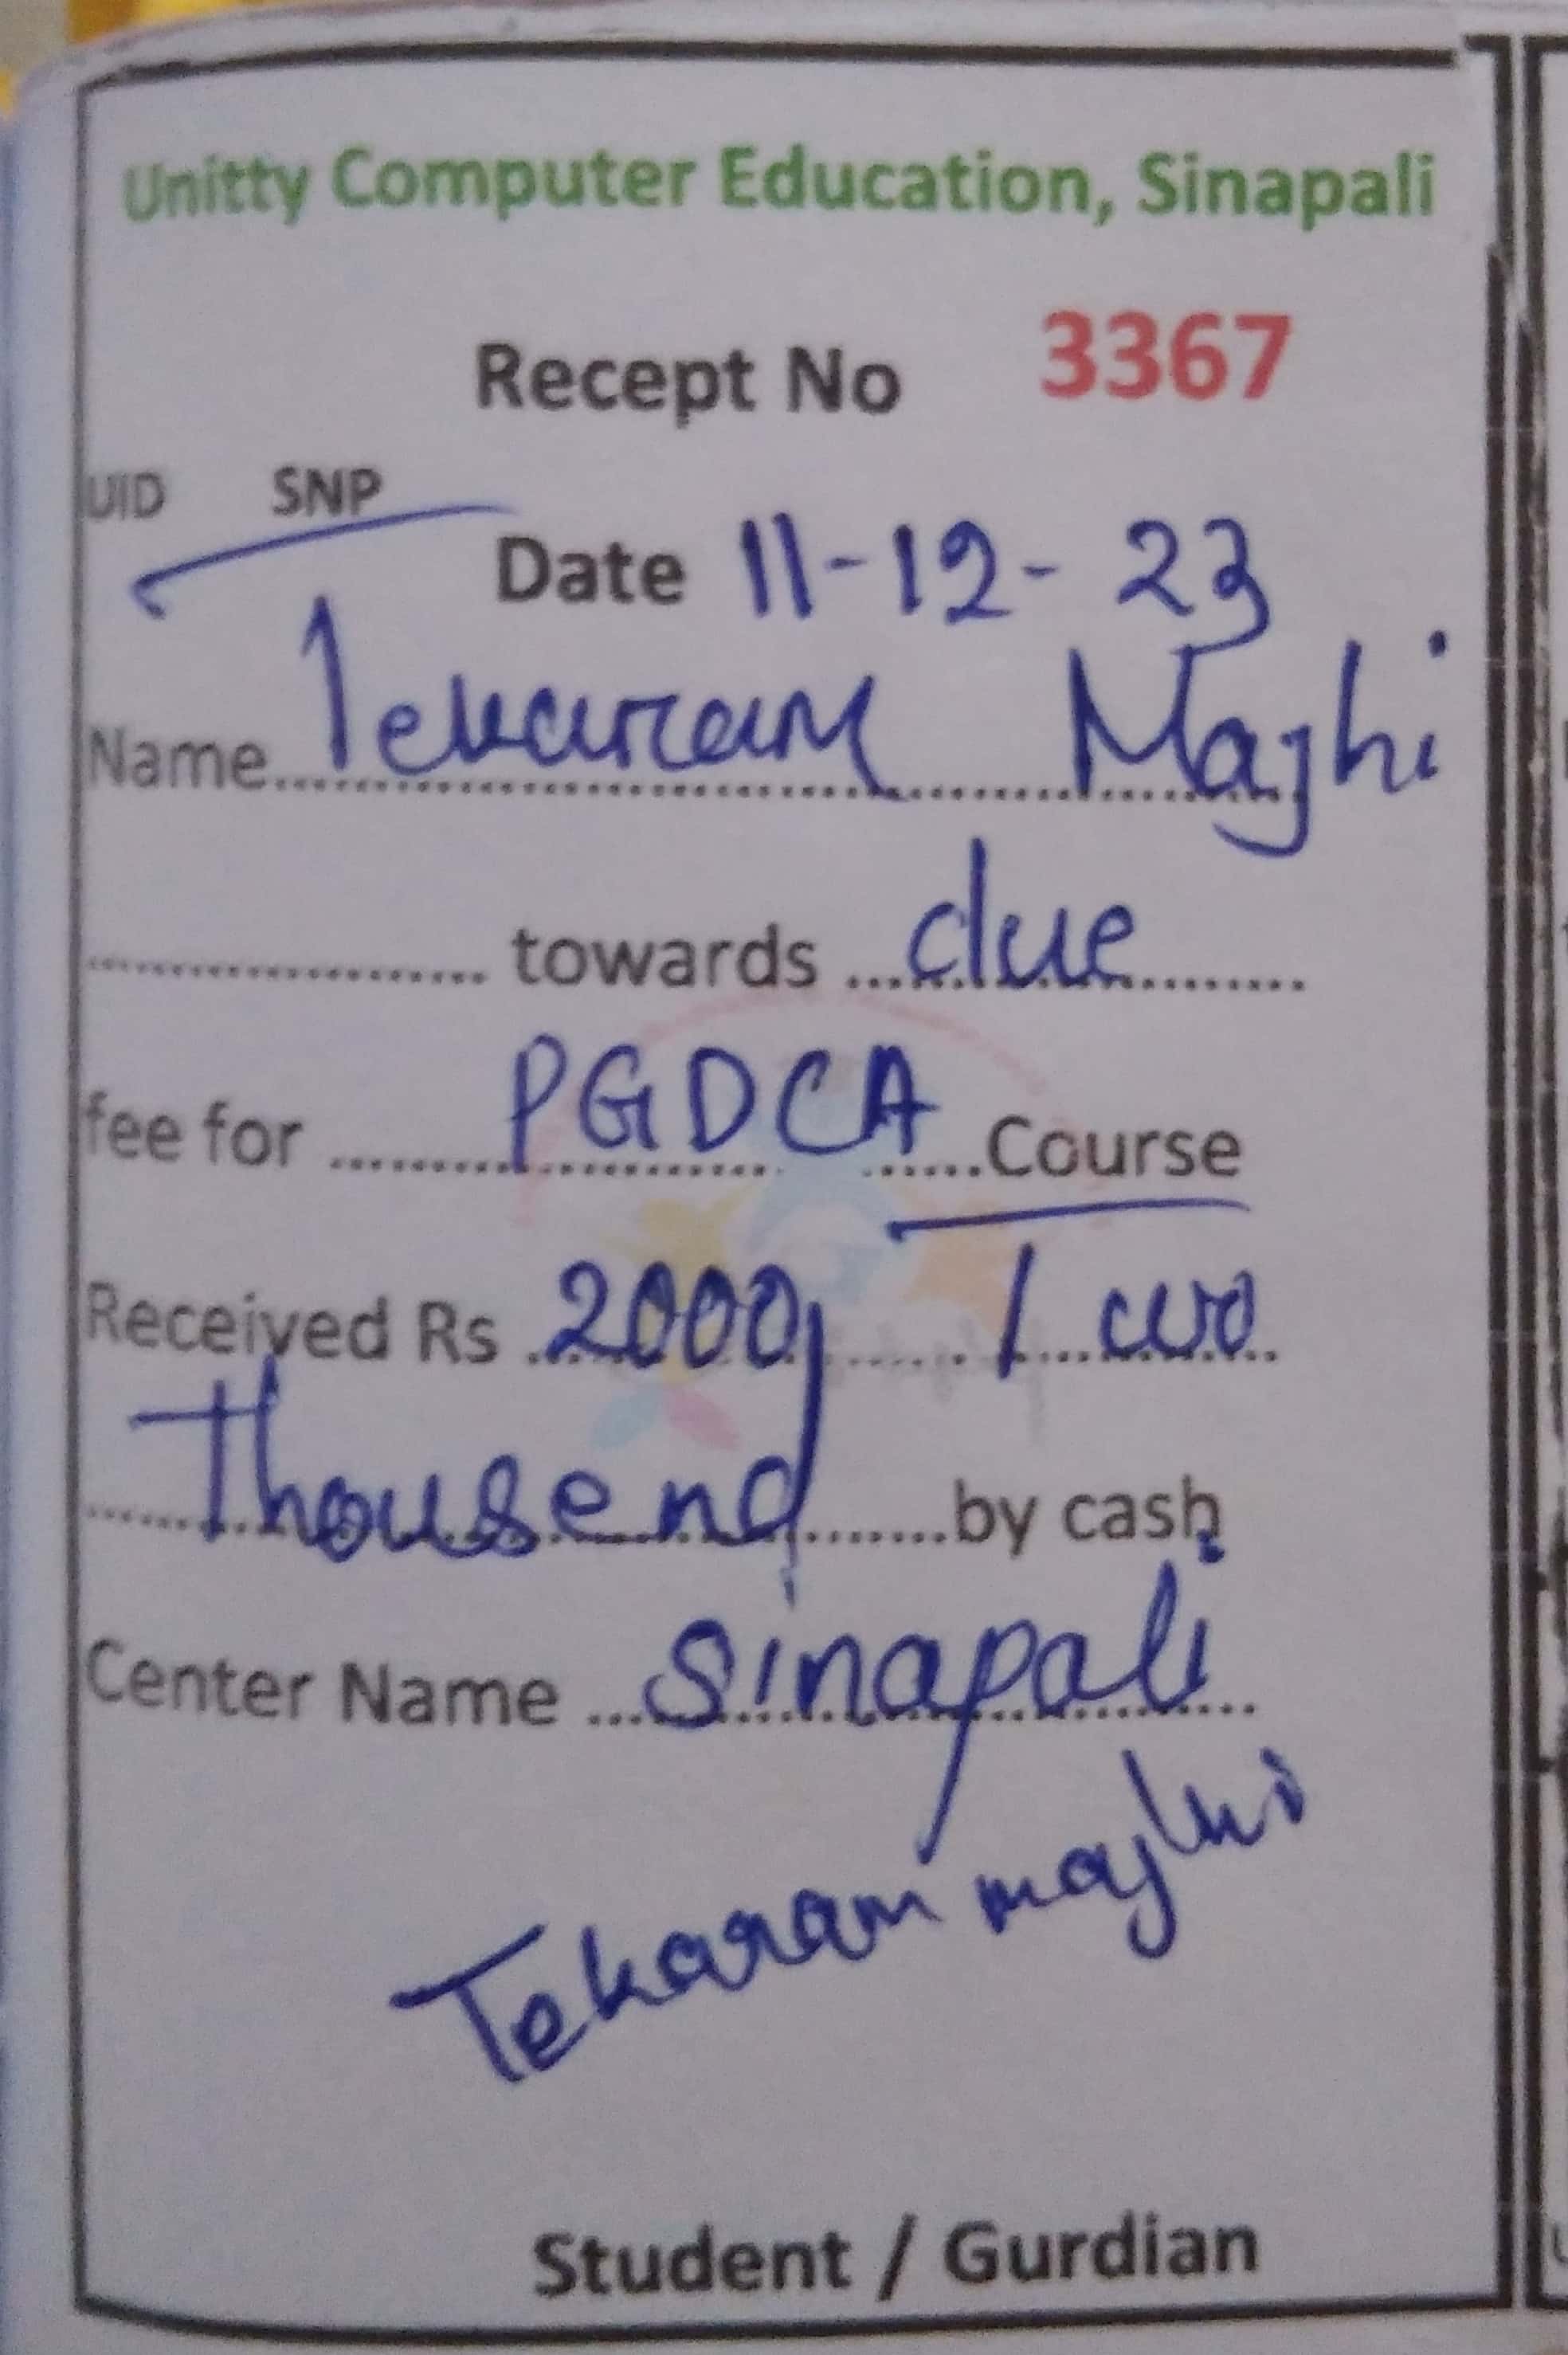 Unitty Computer Education, Sinapali
Recept No 3367
UID SNP
Date 11-12-23
Name Tekaram Majhi
towards due
fee for PGDCA Course
Received Rs 2000 Two
Thousend by cash
Center Name Sinapali
Tekaram majhi
Student / Gurdian